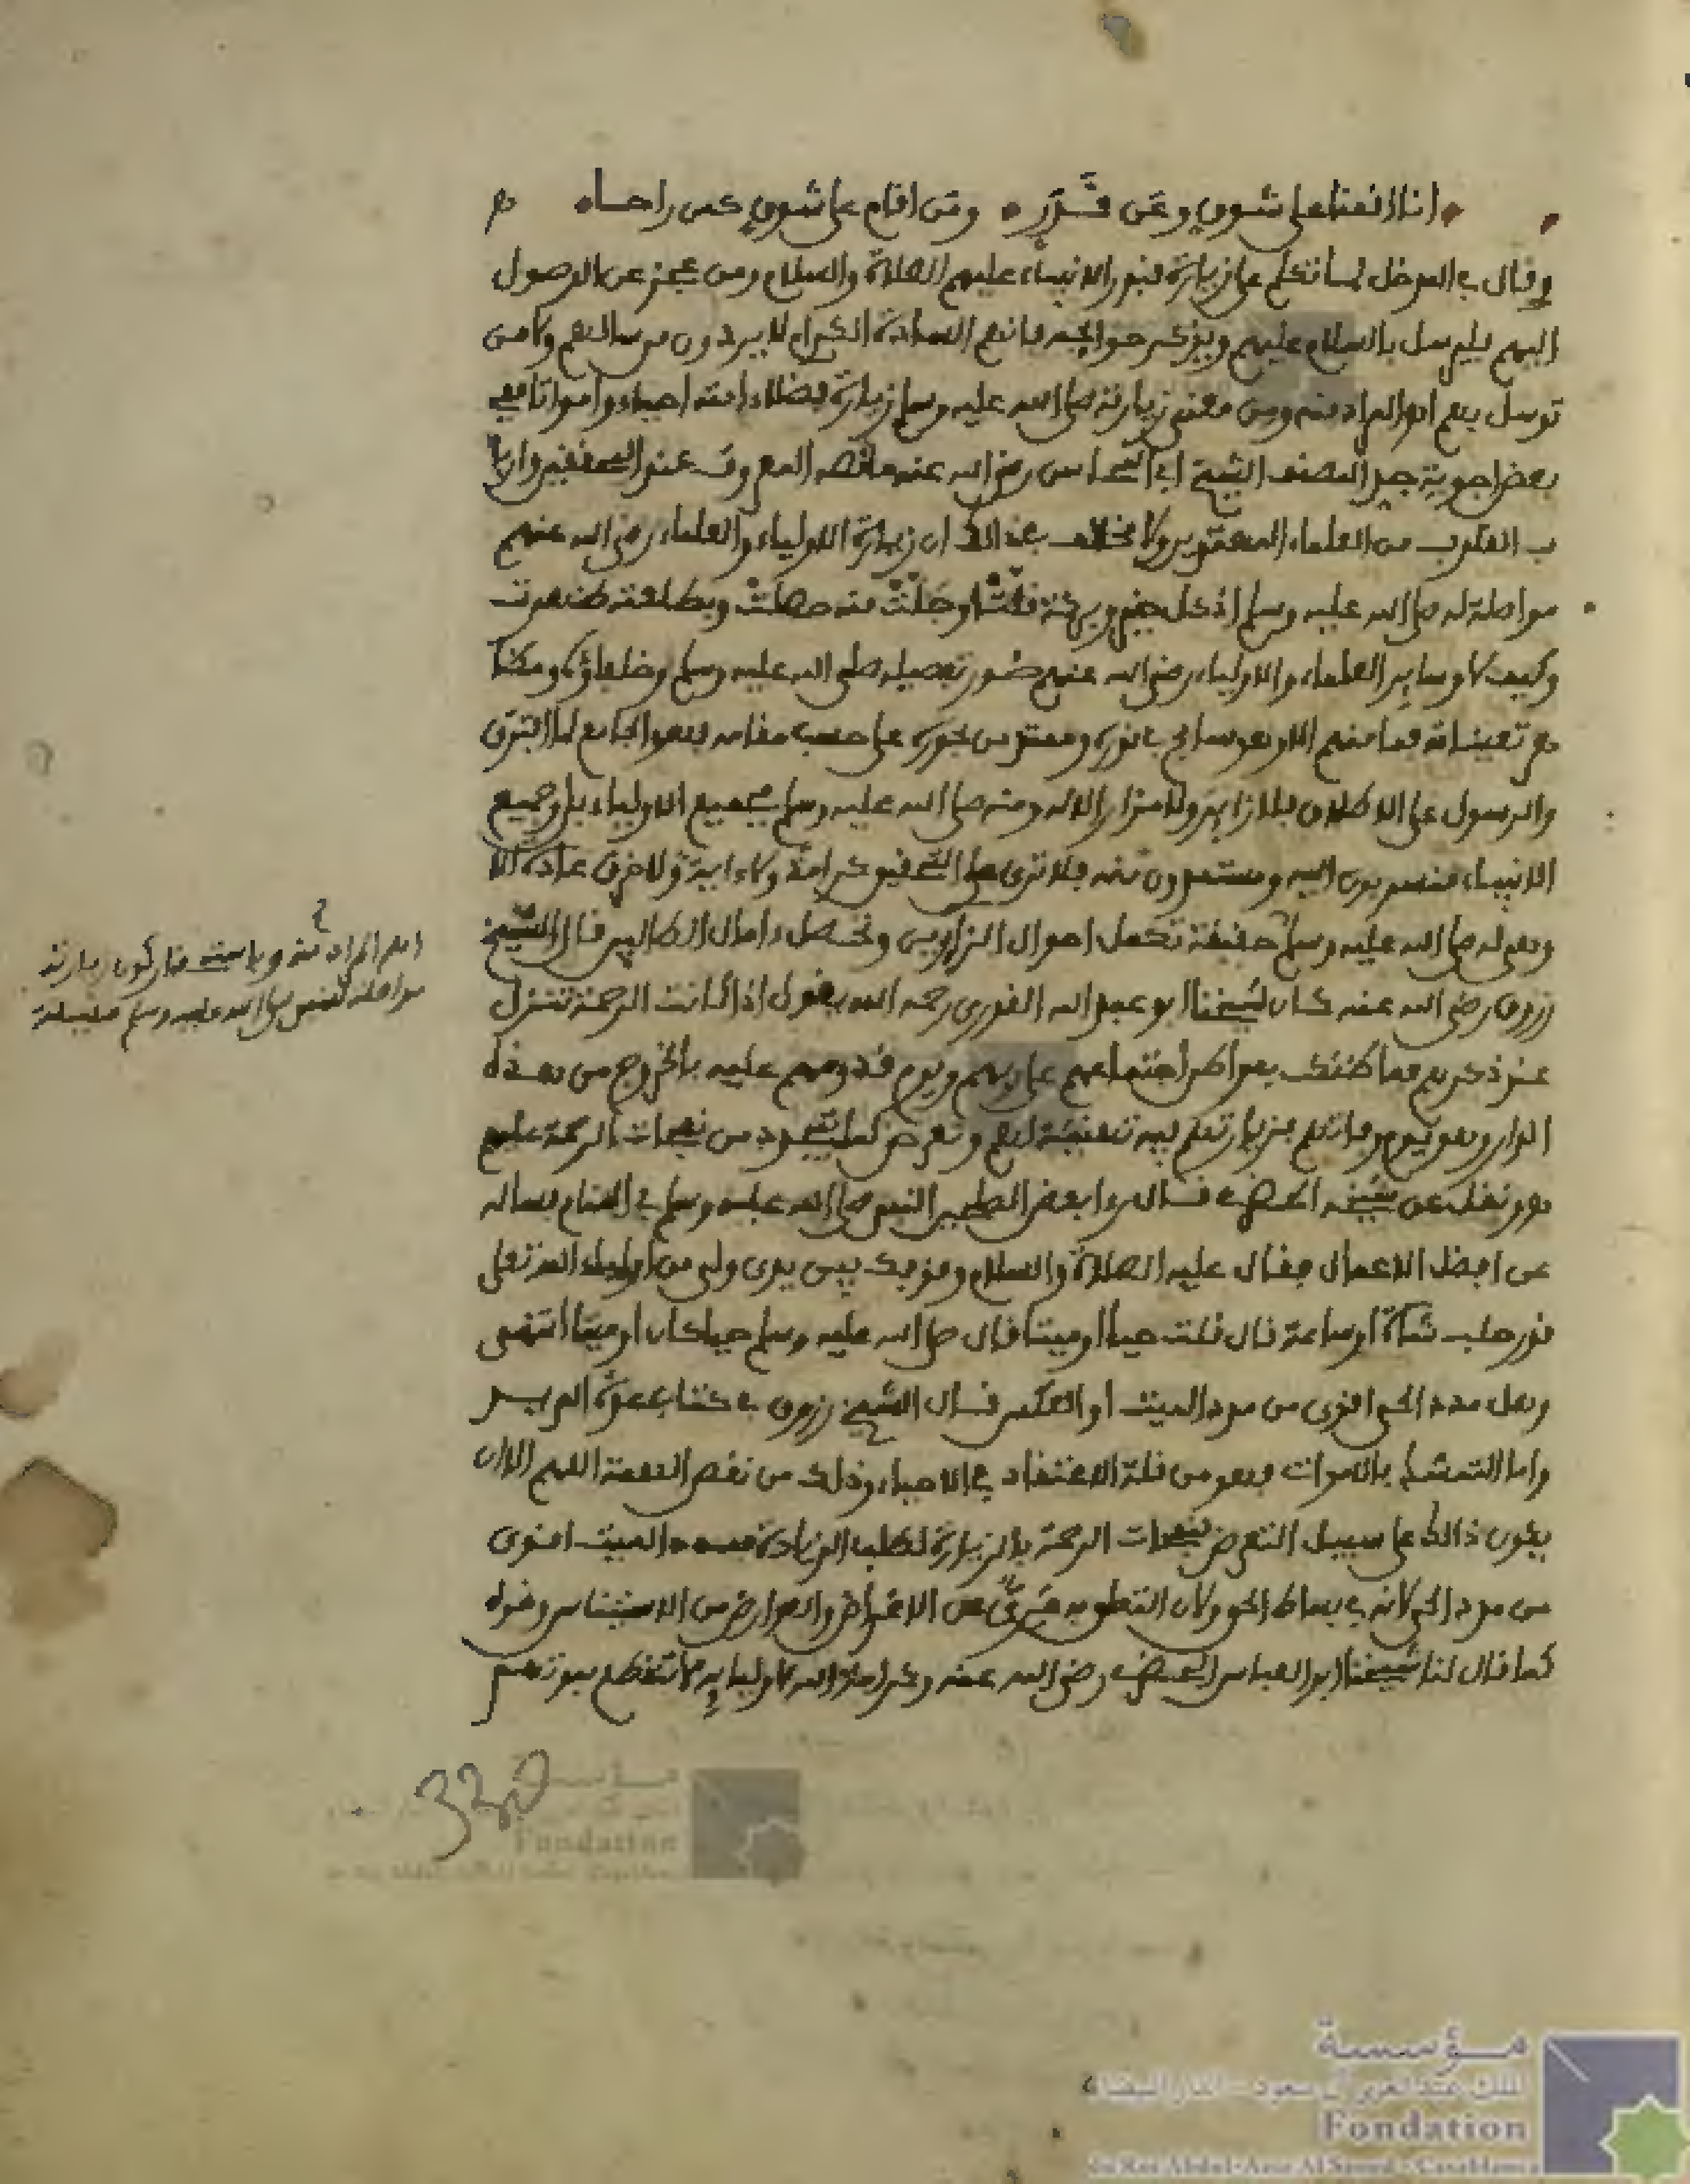 انا اقمنا على شوق وعن قدر • ومن اقام على شوق كمن راحا
وقال في المدخل لما تكلم على زيارة قبور الانبياء عليهم الصلاة والسلام ومن عجز عن الوصول
اليهم فليرسل بالسلام عليهم ويذكر حوائجه فانهم السادة الكرام لا يردون من سالهم ولا من
توسل بهم انه المراد منه ومن معنى زيارته صلى الله عليه وسلم زيارة فضلاء امته احياء وامواتا ففي
بعض اجوبة المصنف الشيخ ابي المحاسن رضي الله عنه ما نصه المعروف عند المحققين واربا
ب القلوب من العلماء المعتبرين ولا مخالف في ذالك ان زيارة الاولياء والعلماء رضي الله عنهم
مواصلة له صلى الله عليه وسلم اذ كل خير وبركة قلت او جلت منه حصلت وبطلعته ظهرت
وكيف لا وساير العلماء والاولياء رضي الله عنهم صور تفصيله صلى الله عليه وسلم وخلفاؤه ومظا
هر تعيناته فما منهم الا وهو سابح في نوره ومستمد من بحوره على حسب مقامه فهو الجامع لما افترق
والرسول على الاطلاق فلا زاير ولا مزار الا له ومنه صلى الله عليه وسلم فجميع الاولياء بل وجميع
الانبياء منسوبون اليه ومستمدون منه فلا ترى على التحقيق كرامة ولا ءاية ولا خرق عادة الا
وهي له صلى الله عليه وسلم حقيقة تكمل احوال الزايرين وتحصل ءامال الطالبين قال الشيخ
زروق رضي الله عنه كان شيخنا ابو عبد الله القوري رحمه الله يقول اذا كانت الرحمة تنزل
عند ذكرهم فما ظنك بمواطن اجتماعهم على ربهم ويوم قدومهم عليه بالخروج من هذه
الدار وهو يوم وفاتهم فزيارتهم فيه تهنئة لهم وتعرض لما يتجدد من نفحات الرحمة عليهم
ونقل عن شيخه الحضرمي قال راى بعض الصالحين النبي صلى الله عليه وسلم في المنام فساله
عن افضل الاعمال فقال عليه الصلاة والسلام وقوفك بين يدي ولي من اولياء الله تعلى
قدر حلب شاة او ساعة قال قلت حيا او ميتا قال صلى الله عليه وسلم حيا كان او ميتا انتهى
وهل مدد الحي اقوى من مدد الميت او العكس قال الشيخ زروق في كتاب عدة المريد
واما التمسك بالاموات فهو من قلة الاعتقاد في الاحياء وذلك من نقص الهمة اللهم الا ان
يكون ذالك على سبيل التعرض لنفحات الرحمة بالزيارة لطلب الزيادة فمدد الميت اقوى
من مدد الحي لانه في بساط الحق ولان التعلق به عري عن الاغراض والعوارض من الاستيناس ونحوه
كما قال لنا شيخنا ابو العباس الحضرمي رضي الله عنه وكرامة الله لاوليايه لا تنقطع بموتهم
مواصلة للنبي صلى الله عليه وسلم
330
مؤسسة
Fondation
مؤسسة
الملك عبد العزيز آل سعود - الدار البيضاء
Fondation
du Roi Abdul-Aziz Al Saoud - Casablanca